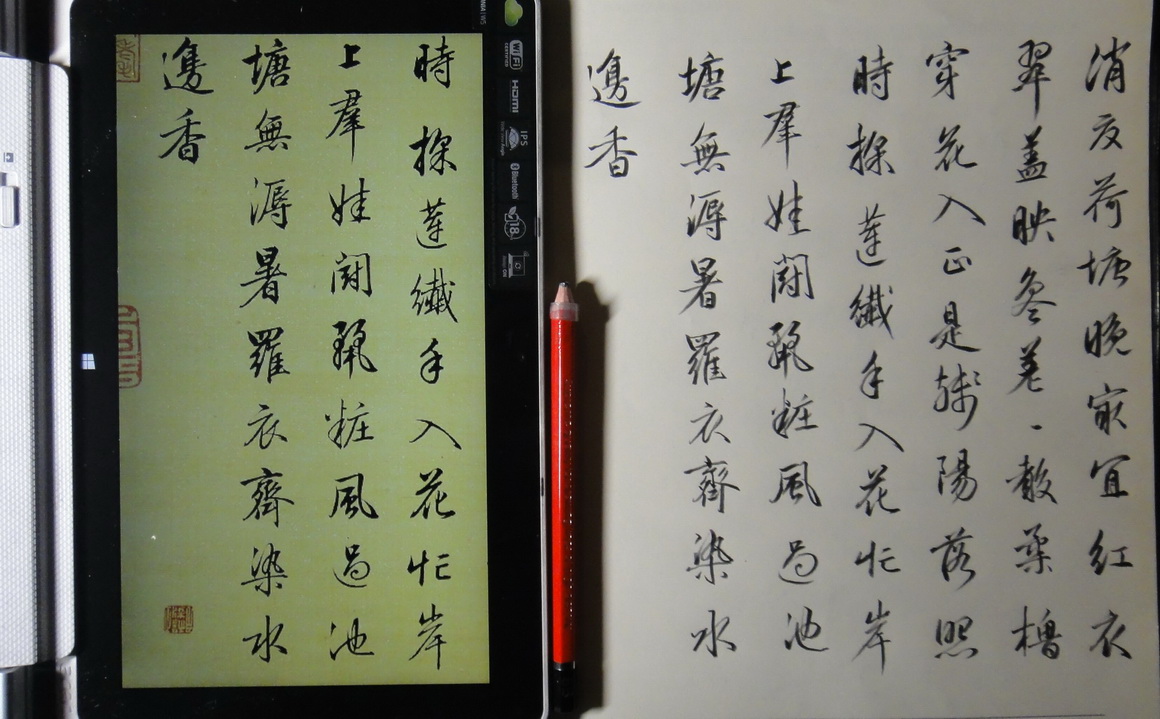 時採蓮纖手入花忙岸
上羣娃鬪靚粧風過池
塘無溽暑羅衣齊染水
邊香
WiFi
CERTIFIED
HDMI
IPS
Bluetooth
18
消夏荷塘晚最宜紅衣
翠盖映參差一聲柔櫓
穿花入正是殘陽落照
時採蓮纖手入花忙岸
上羣娃鬪靚粧風過池
塘無溽暑羅衣齊染水
邊香